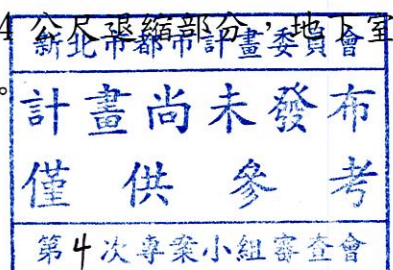 4 公尺退縮部分，地下室
。
新北市都市計畫委員會
計畫尚未發布
僅供參考
第4次專案小組審查會